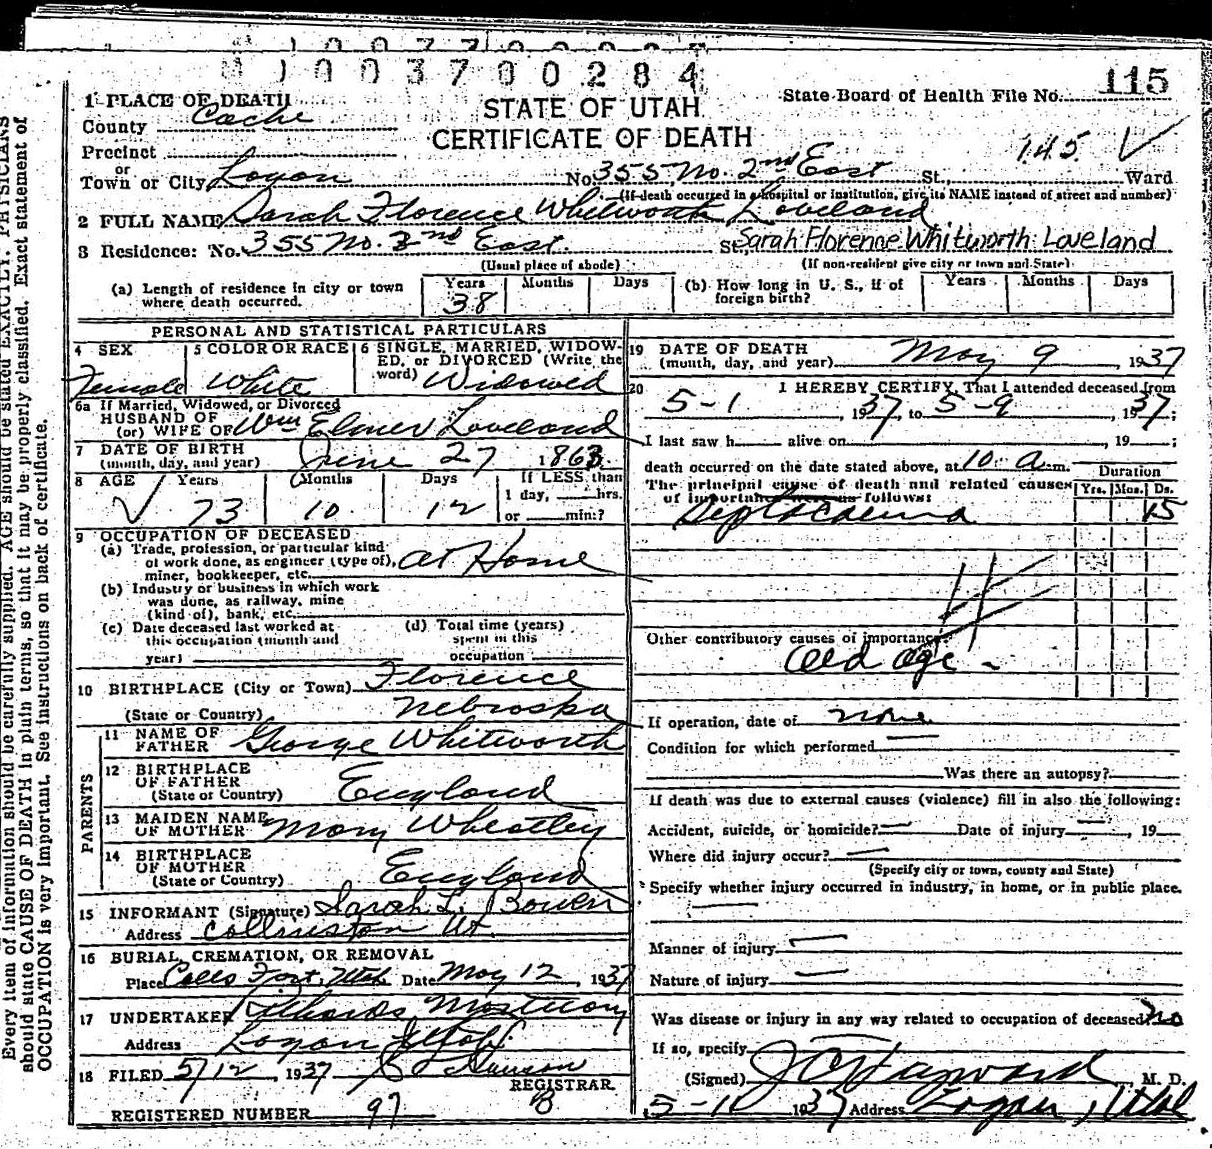 M 1003700284
115
1 PLACE OF DEATH
STATE OF UTAH
State Board of Health File No.
County Cache
CERTIFICATE OF DEATH
145
Precinct
or
Town or City Logan No. 355 No. 2nd East St. Ward
(If death occurred in a hospital or institution, give its NAME instead of street and number)
2 FULL NAME Sarah Florence Whitworth Loveland
3 Residence: No. 355 No. 2nd East St. Sarah Florence Whitworth Loveland
(Usual place of abode) (If non-resident give city or town and State)
(a) Length of residence in city or town where death occurred. Years 38 Months Days
(b) How long in U. S., if of foreign birth? Years Months Days
PERSONAL AND STATISTICAL PARTICULARS
4 SEX Female
5 COLOR OR RACE White
6 SINGLE, MARRIED, WIDOW-
ED, or DIVORCED (Write the
word) Widowed
6a If Married, Widowed, or Divorced
HUSBAND OF
(or) WIFE OF Wm Elmer Loveland
7 DATE OF BIRTH
(month, day, and year) June 27 1863
8 AGE Years 73 Months 10 Days 12
If LESS than
1 day, hrs.
or min.?
9 OCCUPATION OF DECEASED
(a) Trade, profession, or particular kind
of work done, as engineer (type of),
miner, bookkeeper, etc. at Home
(b) Industry or business in which work
was done, as railway, mine
(kind of), bank, etc.
(c) Date deceased last worked at
this occupation (month and
year)
(d) Total time (years)
spent in this
occupation
10 BIRTHPLACE (City or Town) Florence
(State or Country) Nebraska
PARENTS
11 NAME OF
FATHER George Whitworth
12 BIRTHPLACE
OF FATHER
(State or Country) England
13 MAIDEN NAME
OF MOTHER Mary Wheatley
14 BIRTHPLACE
OF MOTHER
(State or Country) England
15 INFORMANT (Signature) Sarah L. Bowen
Address Collinston Ut.
16 BURIAL, CREMATION, OR REMOVAL
Place Calls Fort, Utah Date May 12, 1937
17 UNDERTAKER Mortuary
Address Logan Utah
18 FILED 5/12, 1937
REGISTRAR
REGISTERED NUMBER 97
19 DATE OF DEATH
(month, day, and year) May 9 1937
20 I HEREBY CERTIFY, That I attended deceased from
5-1, 1937, to 5-9, 1937;
I last saw h alive on , 19 ;
death occurred on the date stated above, at 10 a.m.
The principal cause of death and related causes
of importance were as follows:
Duration
Yrs. Mos. Ds.
Septacaemia 15
Other contributory causes of importance:
Old age -
If operation, date of none
Condition for which performed
Was there an autopsy?
If death was due to external causes (violence) fill in also the following:
Accident, suicide, or homicide? Date of injury , 19
Where did injury occur?
(Specify city or town, county and State)
Specify whether injury occurred in industry, in home, or in public place.
Manner of injury
Nature of injury
Was disease or injury in any way related to occupation of deceased? no
If so, specify
(Signed) J C Hayward M. D.
5-11 1937 Address Logan, Utah
Every item of information should be carefully supplied. AGE should be stated EXACTLY. PHYSICIANS
should state CAUSE OF DEATH in plain terms, so that it may be properly classified. Exact statement of
OCCUPATION is very important. See instructions on back of certificate.